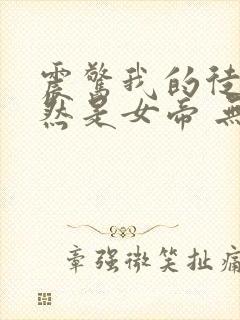 震驚我的徒
然是女帝 無
章強微笑扯痛